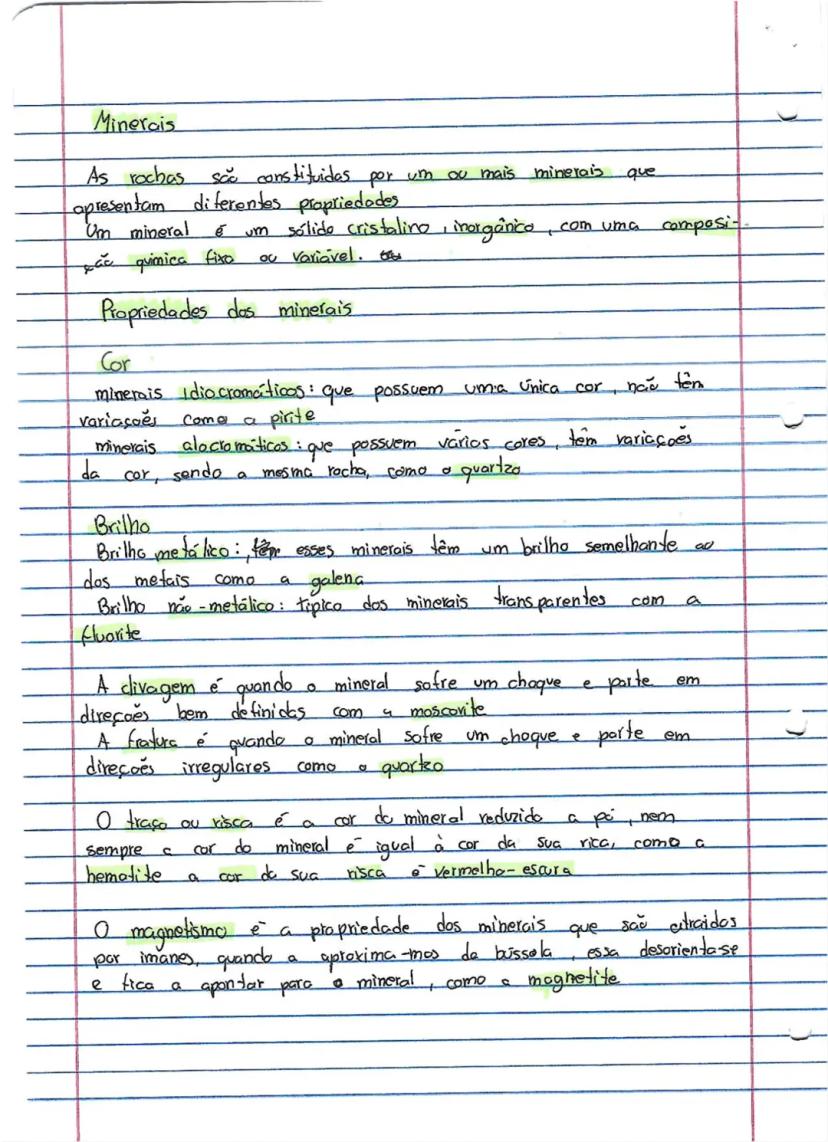 Minerais
As rochas são constituidas por um ou mais minerais que
apresentam diferentes propriedades
Um mineral é um sólido cristalino, inorgânico, com uma composi-
ção quimica fixa ou variável.
Propriedades dos minerais
Cor
minerais idiocromáticos: que possuem uma única cor, não têm
variações como a pirite
minerais alocromáticos: que possuem várias cores, têm variações
da cor, sendo a mesma rocha, como o quartzo
Brilho
Brilho metálico: têm esses minerais têm um brilho semelhante ao
dos metais como a galena
Brilho não-metálico: típico dos minerais transparentes com a
fluorite
A clivagem é quando o mineral sofre um choque e parte em
direções bem definidas com a moscovite
A fratura é quando o mineral sofre um choque e parte em
direções irregulares como o quartzo
O traço ou risca é a cor do mineral reduzido a pó, nem
sempre a cor do mineral é igual à cor da sua rica, como a
hematite a cor da sua risca é vermelho-escura
O magnetismo é a propriedade dos minerais que são atraidos
por imanes, quando a aproxima-mos da bússola, essa desorienta-se
e fica a apontar para o mineral, como a magnetite